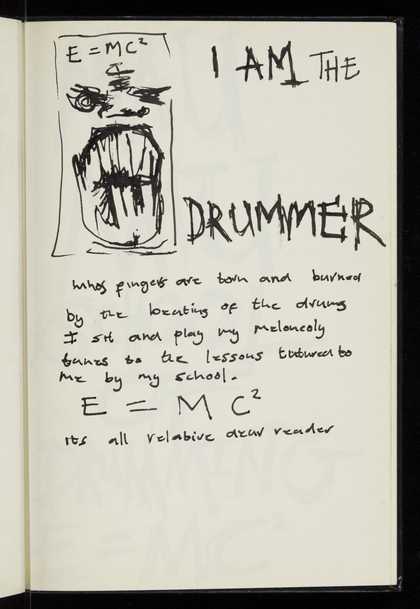 E = MC²
I AM THE
DRUMMER
whos fingers are torn and burned
by the beating of the drums
I sit and play my meloncoly
tunes to the lessons tutured to
me by my school.
E = M C²
its all relative dear reader